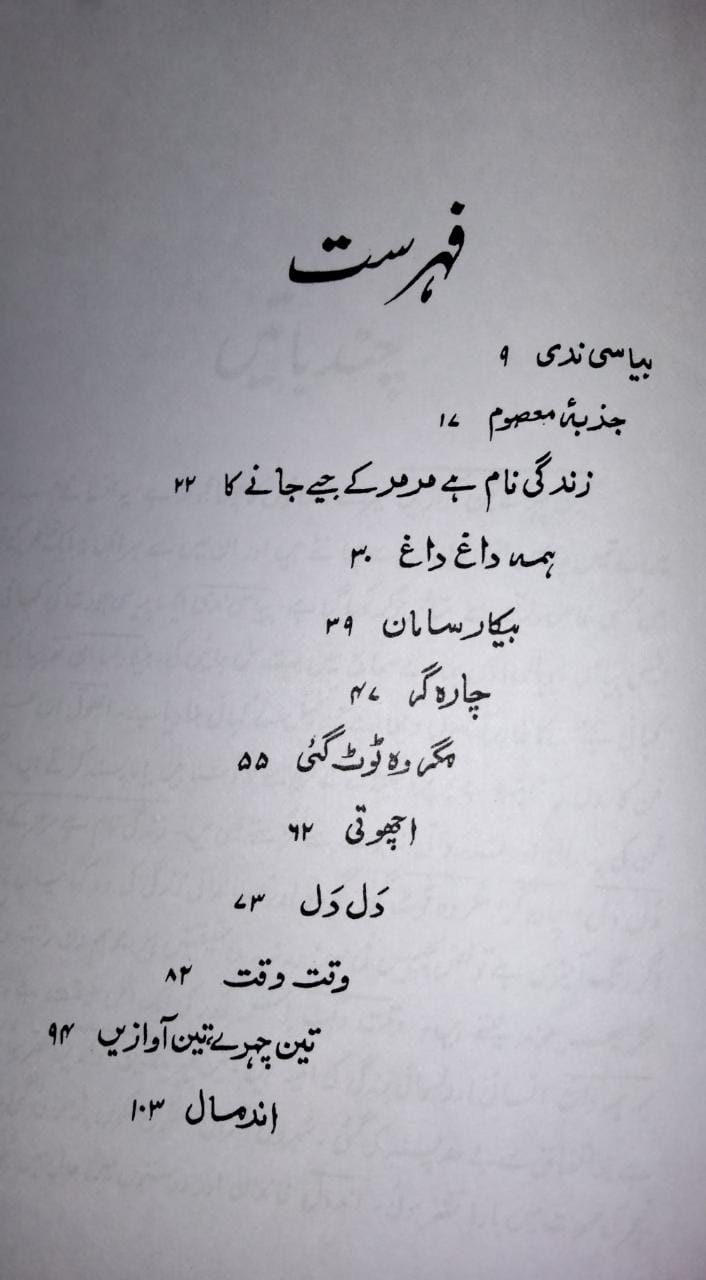 فہرست
پیاسی ندی ۹
جذبۂ معصوم ۱۷
زندگی نام ہے مر مر کے جیے جانے کا ۲۲
ہمہ داغ داغ ۳۰
بیکار سامان ۳۹
چارہ گر ۴۷
مگر وہ ٹوٹ گئی ۵۵
اچھوتی ۶۲
دَل دَل ۷۳
وقت وقت ۸۲
تین چہرے، تین آوازیں ۹۴
اندمال ۱۰۳